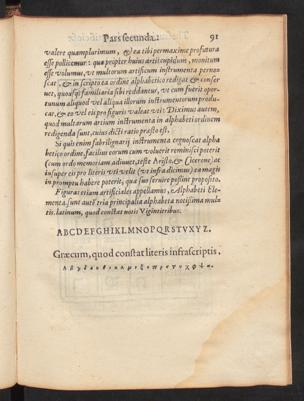 Pars secunda. 91
valere quamplurimum, & ea tibi permaxime profutura
esse pollicemur: qua propter huius arti cupidum, monitum
esse volumus, vt multorum artificum instrumenta pernos
cat, & in scriptis ea ordine alphabetico redigat & conser
uet, quousq; familiaria sibi reddantur, vt cum fuerit opor-
tunum aliquod vel aliqua illorum instrumentorum produ-
cat, & eo vel eis pro figuris valeat vti: Diximus autem,
quod multarum artium instrumenta in alphabeti ordinem
redigenda sunt, cuius dicti ratio præsto est.
Si quis enim fabrilignarij instrumenta cognoscat alpha
betico ordine, facilius eorum cum voluerit reminisci poterit
(cum ordo memoriam adiuuet, teste Aristo. & Cicerone) ac
insuper eis pro literis vti velit (vt infra dicimus) ea magis
in promptu habere poterit, quæ suo seruire possint proposito.
Figuras etiam artificiales appellamus, Alphabeti Ele
menta. sunt autē tria principalia alphabeta notissima mul
tis. latinum, quod constat notis Vigintitribus.
ABCDEFGHIKLMNOPQRSTVXYZ.
Græcum, quod constat literis infrascriptis.